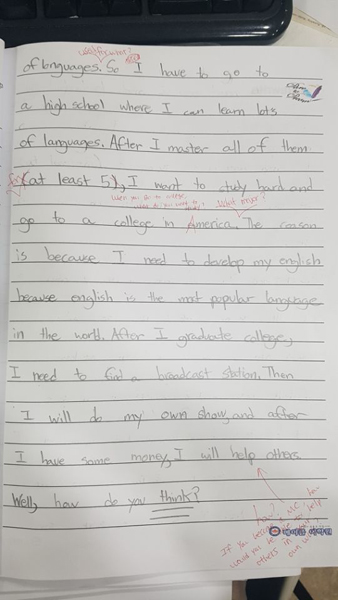 what for when?
of languages. So I have to go to
a high school where I can learn lots
of languages. After I master all of them
(at least 5), I want to study hard and
go to a college in America. The reason
is because I need to develop my english
because english is the most popular language
in the world. After I graduate college,
I need to find a broadcast station. Then
I will do my own show, and after
I have some money, I will help others.
Well, how do you think?
how?
If you
MC,
would you be
help
others in